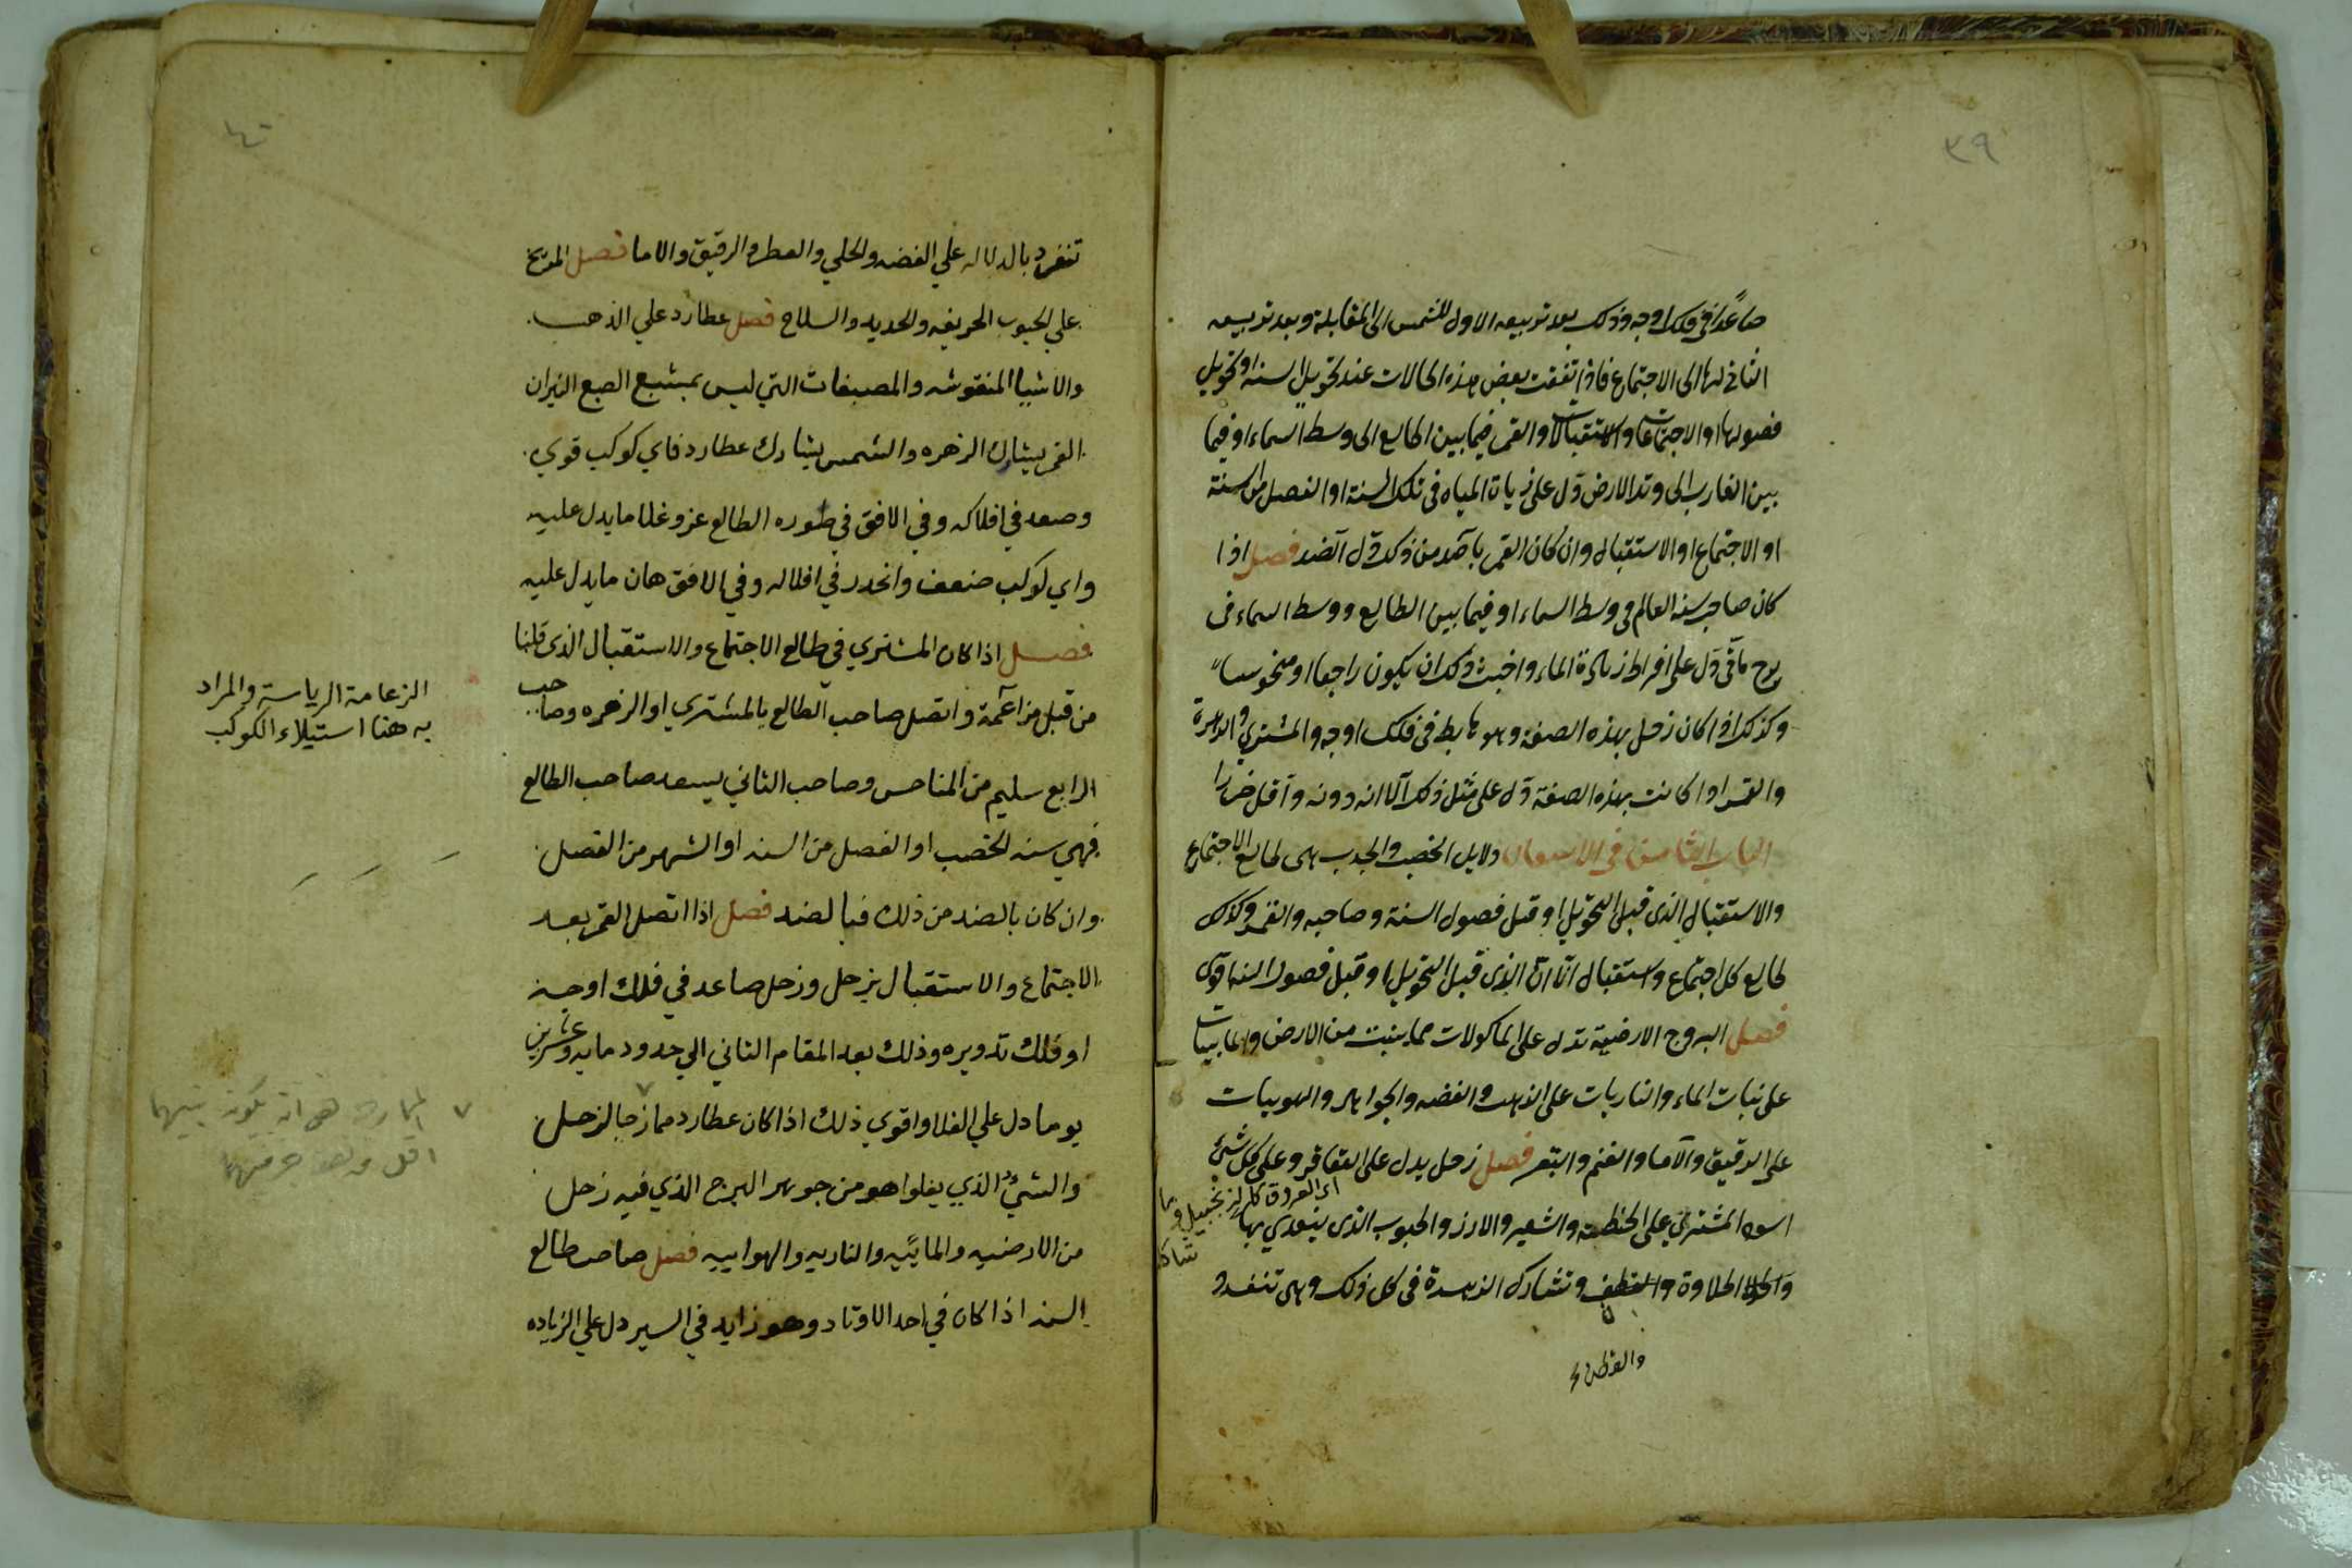 ٣٩
صاعدًا في فلك اوجه وذلك بعد تربيعه الاول للشمس الى المقابلة وبعد تربيعه
الثاني لها الى الاجتماع فاذا اتفقت بعض هذه الحالات عند تحويل السنه او تحويل
فصولها او الاجتماعات والاستقبالات والقمر فيما بين الطالع الى وسط السماء او فيما
بين الغارب الى وتد الارض دل على زيادة المياه في تلك السنة او الفصل من السنة
او الاجتماع او الاستقبال وان كان القمر بالضد من ذلك دل الضد فصل اذا
كان صاحب سنة العالم في وسط السماء او فيما بين الطالع ووسط السماء في
برج مائي دل على افراط زيادة الماء واخبث ذلك ان يكون راجعا او منحوسا
وكذلك اذا كان زحل بهذه الصفة وهو هابط في فلك اوجه والمشتري والزهرة
والقمر اذا كانت بهذه الصفة دل على مثل ذلك الا انه دونه واقل ضررا
الباب الثامن في الاسعار دلايل الخصب والجدب هى طالع الاجتماع
والاستقبال الذى قبل التحويل او قبل فصول السنة وصاحبه والقمر وكذلك
طالع كل اجتماع واستقبال الا ان الذى قبل التحويل او قبل فصول السنه اقوى
فصل البروج الارضية تدل على الماكولات مما ينبت من الارض والمائيات
على نبات الماء والناريات على الذهب والفضه والجواهر والهوييات
على الرقيق والاما والغنم والبقر فصل زحل يدل على العقاقر وعلى كل شئ
اى العروق كالزنجبيل وما شاكل
اسود المشتري على الحنطة والشعير والارز والحبوب الذى يتغدي بها
والحلاوة والقطن وتشارك الزهرة في كل ذلك وهى تنفرد
والقطن
٤٠
تنفرد بالدلاله علي الفضه والحلي والعطر والرقيق والاما فصل المريخ
علي الحبوب الحريفه والحديد والسلاح فصل عطارد علي الذهب
والاشيا المنقوشه والمصبغات التي ليس بمشبع الصبع النيران
القمر يشارك الزهره والشمس يشارك عطارد فاي كوكب قوي
وصعد في افلاكه وفي الافق في صوره الطالع عز وغلا ما يدل عليه
واي كوكب ضعف وانحدر في افلاكه وفي الافق هان ما يدل عليه
فصل اذا كان المشتري في طالع الاجتماع والاستقبال الذى قلنا
من قبل مزاعمة واتصل صاحب الطالع بالمشتري او الزهره وصاحب
الزعامة الرياسة والمراد
به هنا استيلاء الكوكب
الرابع سليم من المناحس وصاحب الثاني يسعد صاحب الطالع
فهي سنه الخصب او الفصل من السنه او الشهر من الفصل
وان كان بالضد من ذلك فبالضد فصل اذا اتصل القمر بعد
الاجتماع والاستقبال بزحل وزحل صاعد في فلك اوجه
او فلك تدويره وذلك بعد المقام الثاني الي حدود مايه وعشرين
يوما دل علي الغلا واقوي ذلك اذا كان عطارد ممازجا لزحل
والشيئ الذي يغلوا هو من جوهر البرج الذي فيه زحل
من الارضيه والمائيه والناريه والهواييه فصل صاحب طالع
السنه اذا كان في احد الاوتاد وهو زايد في السير دل علي الزياده